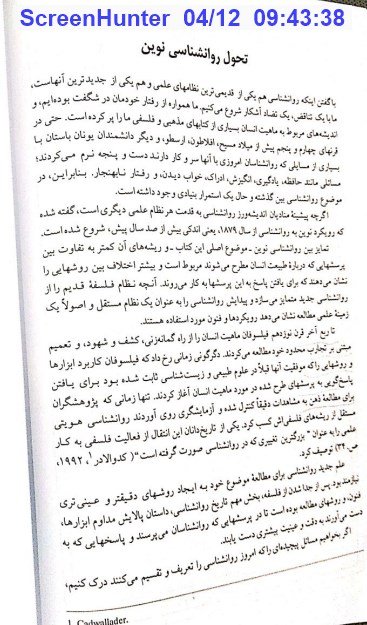 ScreenHunter 04/12 09:43:38
تحول روانشناسی نوین
با گفتن اینکه روانشناسی هم یکی از قدیمی‌ترین نظامهای علمی و هم یکی از جدیدترین آنهاست،
ما با یک تناقض، یک تضاد آشکار شروع می‌کنیم. ما همواره از رفتار خودمان در شگفت بوده‌ایم، و
اندیشه‌های مربوط به ماهیت انسان بسیاری از کتابهای مذهبی و فلسفی ما را پر کرده است. حتی در
قرنهای چهارم و پنجم پیش از میلاد مسیح، افلاطون، ارسطو، و دیگر دانشمندان یونان باستان با
بسیاری از مسایلی که روانشناسان امروزی با آنها سر و کار دارند دست و پنجه نرم می‌کردند؛
مسائلی مانند حافظه، یادگیری، انگیزش، ادراک، خواب دیدن، و رفتار نابهنجار. بنابراین، در
موضوع روانشناسی بین گذشته و حال یک استمرار بنیادی وجود داشته است.
اگرچه پیشینۀ منادیان اندیشه‌ورز روانشناسی به قدمت هر نظام علمی دیگری است، گفته شده
که رویکرد نوین به روانشناسی از سال ۱۸۷۹، یعنی اندکی بیش از صد سال پیش، شروع شده است.
تمایز بین روانشناسی نوین ـ موضوع اصلی این کتاب ـ و ریشه‌های آن کمتر به تفاوت بین
پرسشهایی که دربارۀ طبیعت انسان مطرح می‌شوند مربوط است و بیشتر اختلاف بین روشهایی را
نشان می‌دهند که برای یافتن پاسخ به این پرسشها به کار می‌روند. آنچه نظام فلسفۀ قدیم را از
روانشناسی جدید متمایز می‌سازد و پیدایش روانشناسی را به عنوان یک نظام مستقل و اصولاً یک
زمینۀ علمی مطالعه نشان می‌دهد رویکردها و فنون مورد استفاده هستند.
تا ربع آخر قرن نوزدهم فیلسوفان ماهیت انسان را از راه گمانه‌زنی، کشف و شهود، و تعمیم
مبتنی بر تجارب محدود خود مطالعه می‌کردند. دگرگونی زمانی رخ داد که فیلسوفان کاربرد ابزارها
و روشهایی را که موفقیت آنها قبلاً در علوم طبیعی و زیست‌شناسی ثابت شده بود برای یافتن
پاسخ‌گویی به پرسشهای طرح شده در مورد ماهیت انسان آغاز کردند. تنها زمانی که پژوهشگران
برای مطالعۀ ذهن به مشاهدات دقیقاً کنترل شده و آزمایشگری روی آوردند روانشناسی هویتی
مستقل از ریشه‌های فلسفی‌اش کسب کرد. یکی از تاریخ‌دانان این انتقال از فعالیت فلسفی به کار
علمی را به عنوان " بزرگترین تغییری که در روانشناسی صورت گرفته است" ( کدوالادر۱، ۱۹۹۲،
ص. ۳۴) توصیف کرد.
علم جدید روانشناسی برای مطالعۀ موضوع خود به ایجاد روشهای دقیقتر و عینی‌تری
نیازمند بود. پس از جدا شدن از فلسفه، بخش مهم تاریخ روانشناسی، داستان پالایش مداوم ابزارها،
فنون، و روشهای مطالعه بوده است تا در پرسشهایی که روانشناسان می‌پرسند و پاسخهایی که به
دست می‌آورند به دقت و عینیت بیشتری دست یابند.
اگر بخواهیم مسائل پیچیده‌ای را که امروز روانشناسی را تعریف و تقسیم می‌کنند درک کنیم،
1. Cadwallader.